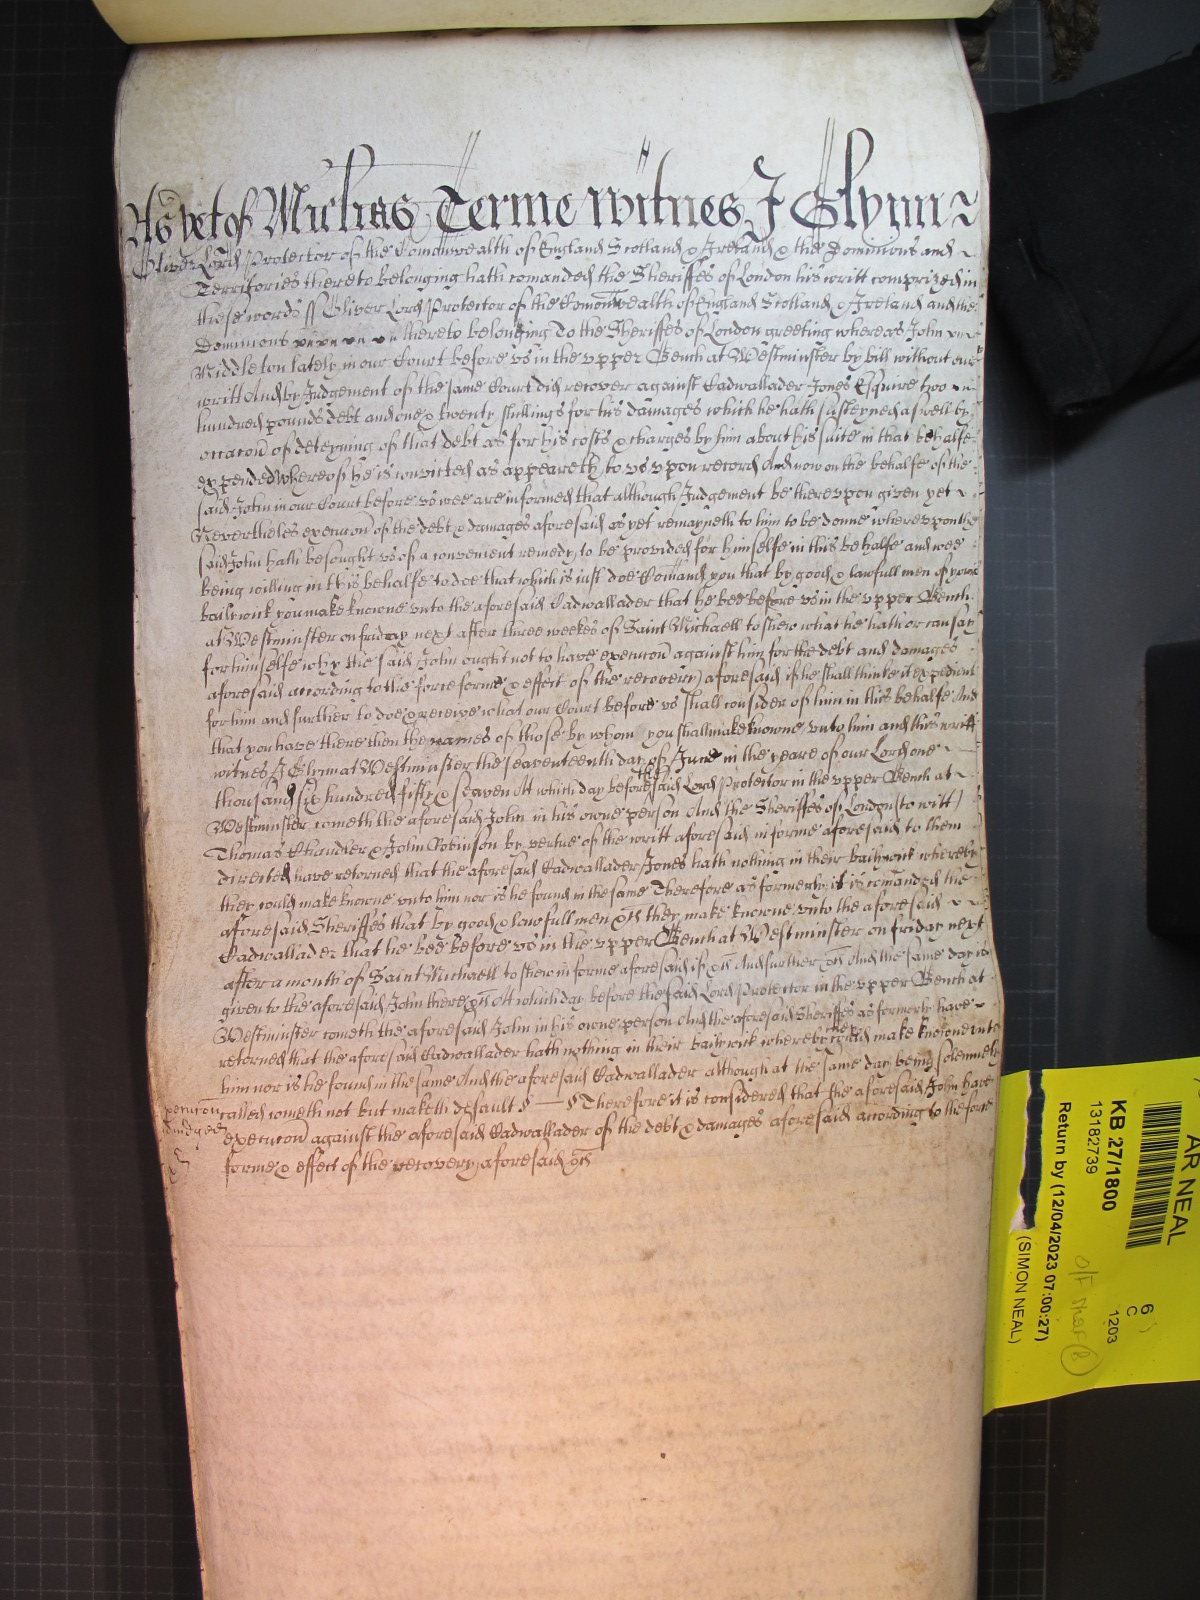 As yet of Michas Terme Witnes J Glynn
Oliver Lord Protector of the Comonwealth of England Scotland & Ireland & the Dominions and
Territories thereto belonging hath comanded the Sheriffes of London his writt comprized in
these words ss Oliver Lord Protector of the Comonwealth of England Scotland & Ireland and the
Dominions thereto belonging To the Sheriffes of London greeting whereas John
Middleton lately in our Court before vs in the vpper Bench at Westminster by bill without our
writt And by Judgement of the same Court did recover against Cadwallader Jones Esquire two
hundred pounds debt and one & twenty shillings for his damages which he hath susteyned aswell by
occacon of deteyning of that debt as for his costs & charges by him about his suite in that behalfe
expended whereof he is convicted as appeareth to vs vpon record And now on the behalfe of the
said John in our Court before vs wee are informed that although Judgement be therevpon given yet
Nevertheles execucon of the debt & damages aforesaid as yet remayneth to him to be donne wherevpon the
said John hath besought vs of a convenient remedy to be provided for himselfe in this behalfe and wee
being willing in this behalfe to doe that which is iust doe Comand you that by good & lawfull men of your
bailywick you make knowne vnto the aforesaid Cadwallader that he bee before vs in the vpper Bench
at Westminster on friday next after three weekes of Saint Michaell to shew what he hath or can say
for himselfe why the said John ought not to have execucon against him for the debt and damages
aforesaid according to the force forme & effect of the recovery aforesaid if he shall thinke it expedient
for him and further to doe & receive what our Court before vs shall consider of him in this behalfe And
that you have there then the names of those by whom you shall make knowne vnto him and this writt
witnes J Glynn at Westminster the seaventeenth day of June in the yeare of our Lord one
thousand six hundred fifty & seaven At which day before the said Lord Protector in the vpper Bench at
Westminster cometh the aforesaid John in his owne person And the Sheriffes of London (to witt)
Thomas Chandler & John Robinson by vertue of the writt aforesaid in forme aforesaid to them
directed have retorned that the aforesaid Cadwallader Jones hath nothing in their bailywick whereby
they could make knowne vnto him nor is he found in the same Therefore as formerly it is comanded the
aforesaid Sheriffes that by good & lawfull men &c they make knowne vnto the aforesaid
Cadwallader that he bee before vs in the vpper Bench at Westminster on friday next
after a month of Saint Michaell to shew in forme aforesaid if &c And further &c And the same day is
given to the aforesaid John there &c At which day before the said Lord Protector in the vpper Bench at
Westminster cometh the aforesaid John in his owne person And the aforesaid Sheriffes as formerly have
retorned that the aforesaid Cadwallader hath nothing in their bailywick whereby they could make knowne vnto
him nor is he found in the same And the aforesaid Cadwallader although at the same day being solemnely
called cometh not but maketh default Therefore it is considered that the aforesaid John have
execucon against the aforesaid Cadwallader of the debt & damages aforesaid according to the force
forme & effect of the recovery aforesaid &c
AR NEAL
KB 27/1800
13182739
Return by (12/04/2023 07:00:27)
(SIMON NEAL)
6
C
1203